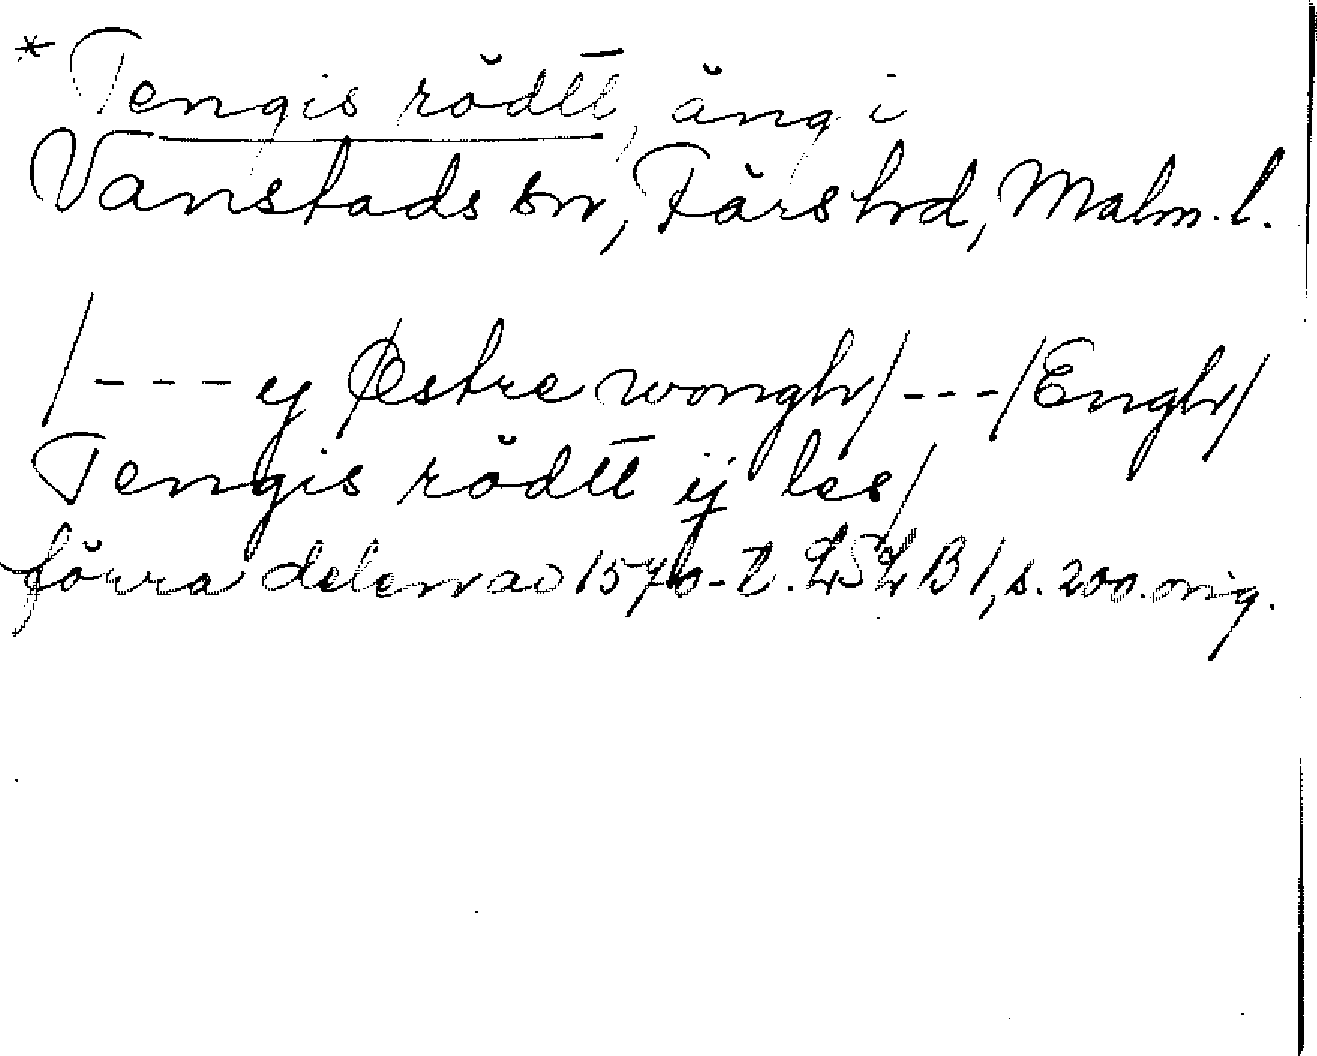 * Tengis rödtt, äng i
Vanstads sn, Färs hd, Malm. l.
/--- ej Østre wongh/---/Engh/
Tengis rödtt ij les/
förra delen av 1570-t. LSLB 1, s. 200. orig.